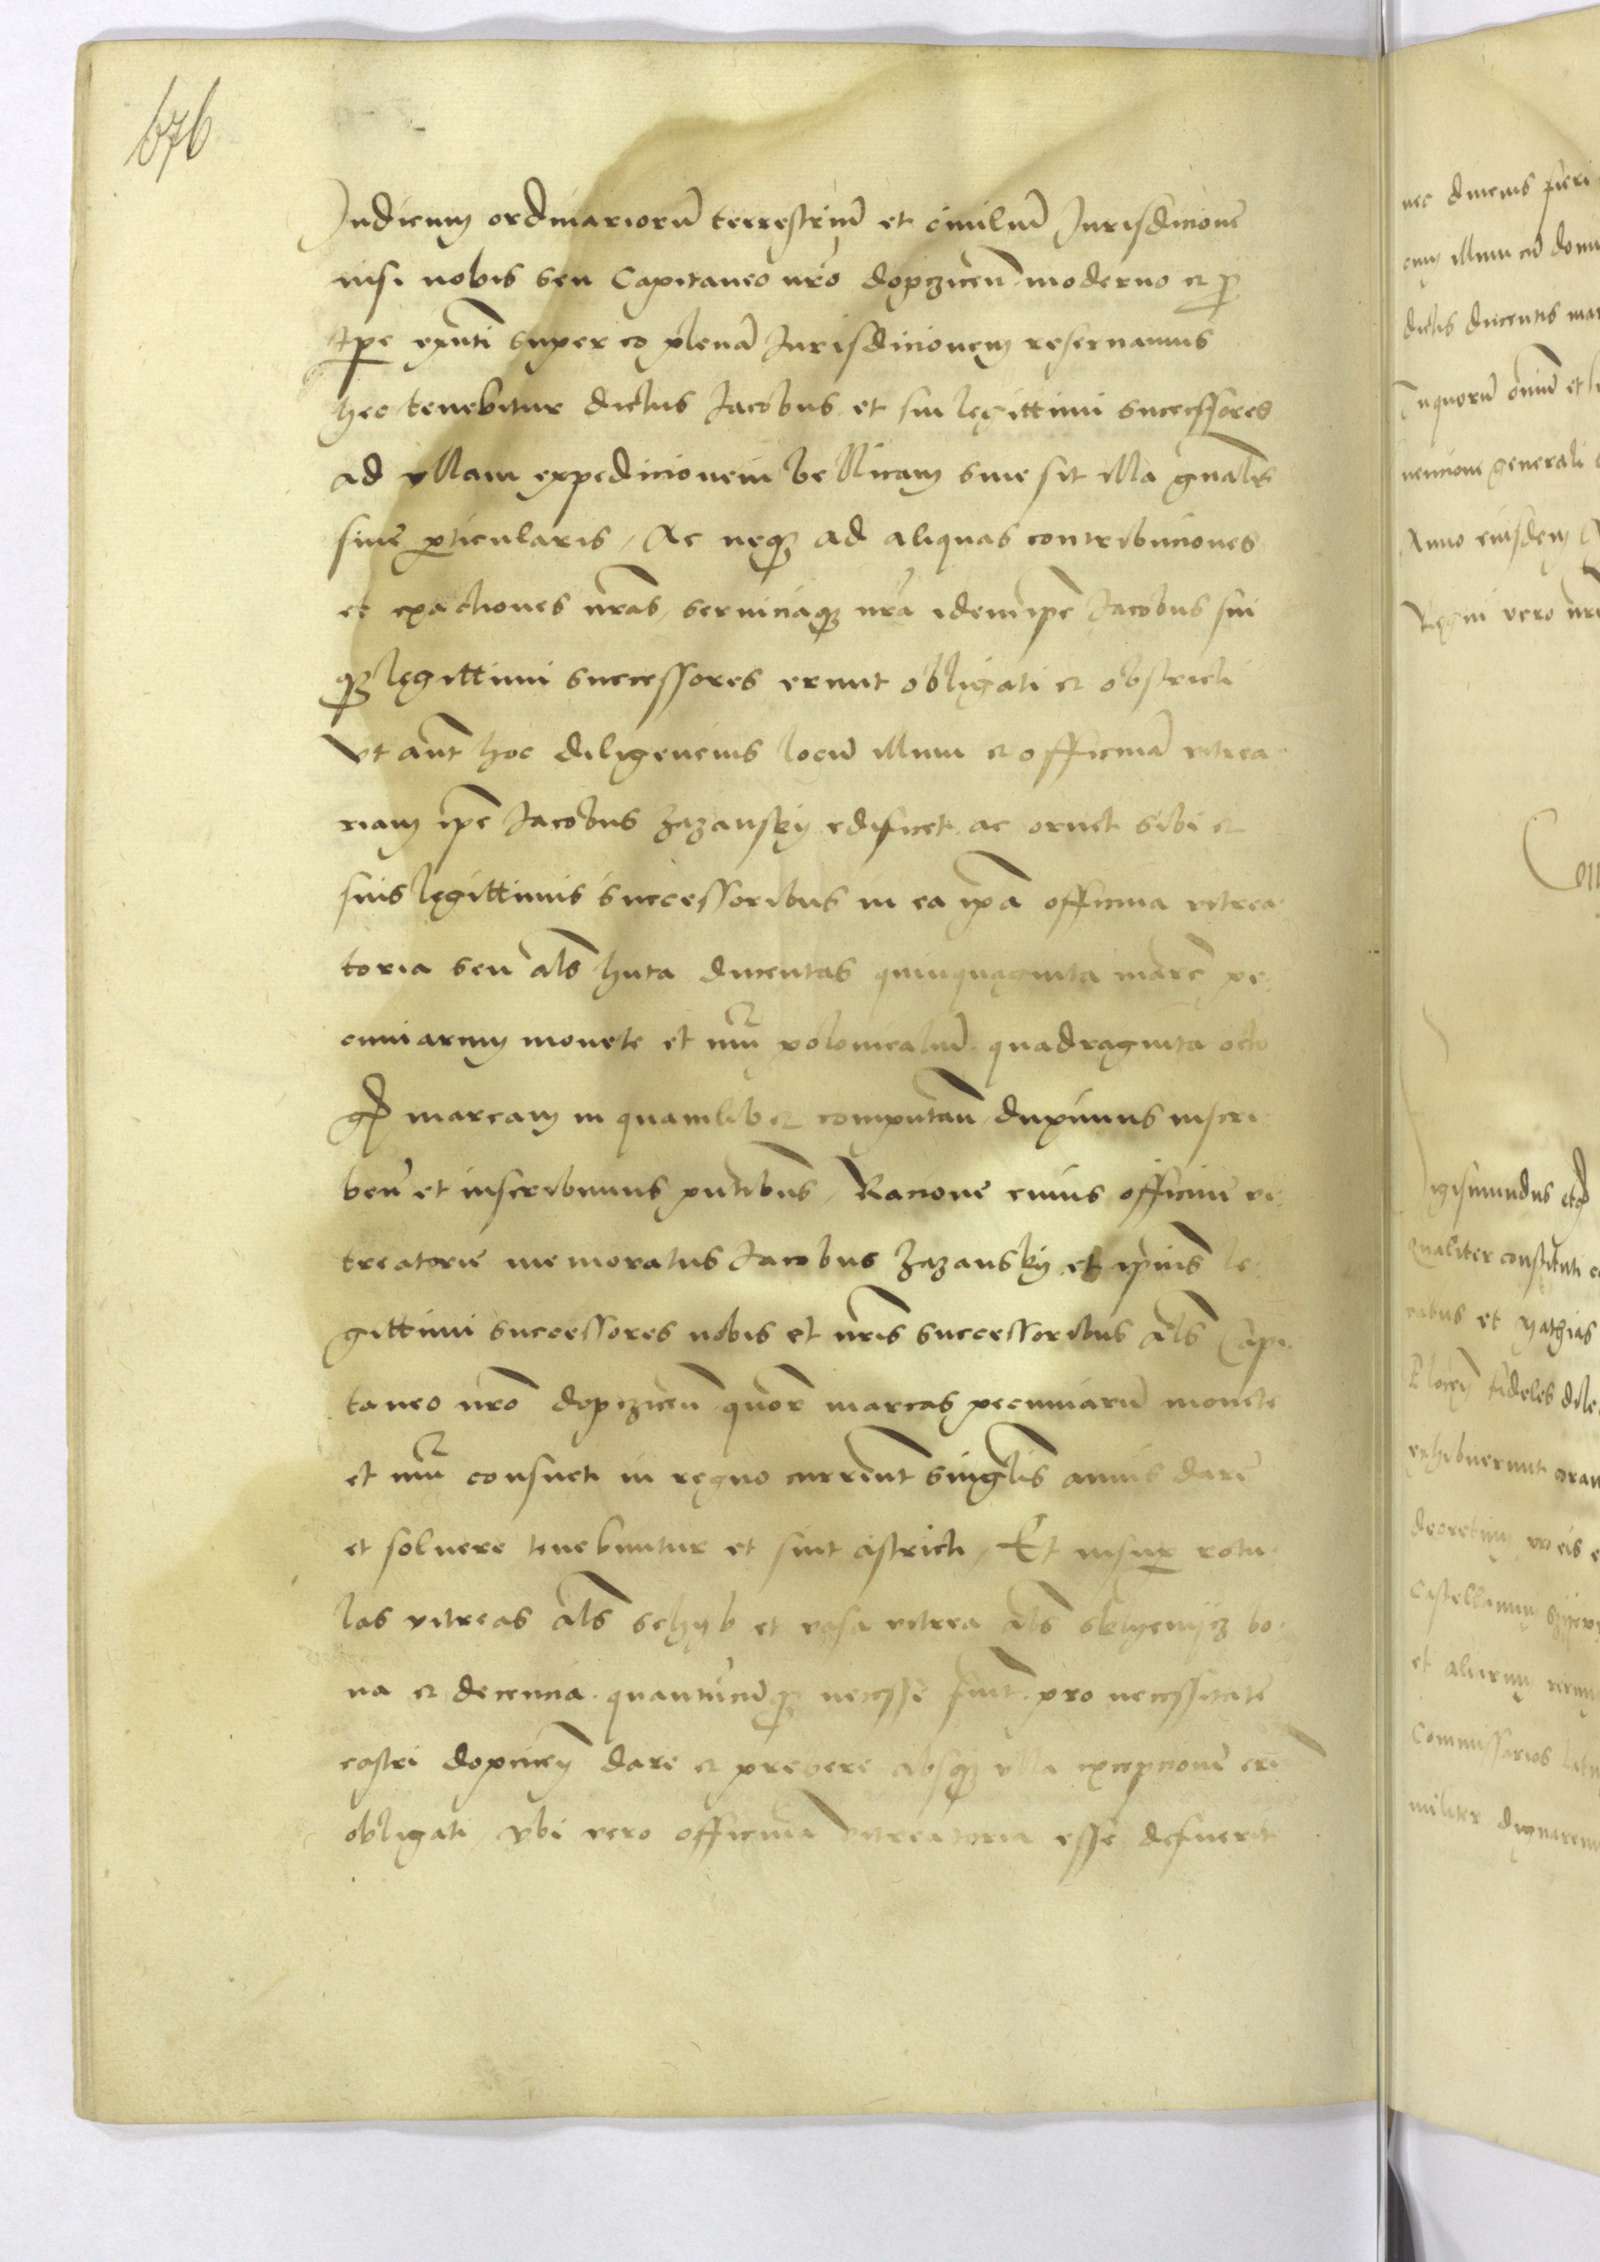 676
Judicum ordinariorū terrestriū et ciuiliū Jurisdicione
nisi nobis seu Capitaneo nr̄o dopczicen̄ moderno et p
tp̄e exn̄ti super eo plenā Jurisdicionem reseruamus
hec tenebitur dictus Jacobus et sui legittimi successores
ad vllam expedicionem bellicam siue sit illa gn̄alis
siue p̄ticularis, Ac neq3 ad aliquas contribuciones
et exactiones nr̄as, seruiciaq3 nr̄a idem ip̄e Jacobus sui
q3 legittimi successores erunt obligati et obstricti
Vt aūt hoc diligencius locū illum et officinā vitrea
riam ip̄e Jacobus Zazansky edificet ac ornet sibi et
suis legittimis successoribus in ea ip̄a officina vitrea
toria seu al̄s huta ducentas quinquaginta marc̄ pe
cuniarum monete et nūi polonicaliū quadraginta octo
gᵒ marcam in quamlibet computan̄ duximus inscri
ben̄ et inscribimus pn̄tibus, Racione cuius officine vi
treatorie memoratus Jacobus Zazansky et ip̄ius le
gittimi successores nobis et nr̄is successoribus al̄s Capi
taneo nr̄o dopczicen̄ quor̄ marcas pecuniarū monete
et nūi consueti in regno curren̄t singlis annis dare
et soluere tenebuntur et sint astricti, Et insup̄ rotu
las vitreas al̄s schyb et vasa vitrea al̄s sklyenycz bo
na et decencia quantūcūq3 necesse fuit pro necessitate
castri dopcicen̄ dare et prebere absq3 vlla excepcione erū
obligati, Vbi vero officina vitreatoria esse defuerit
nec ducens fieri
cum illum cū domu
dictis ducentis mar
Inquorū om̄iū et
uencione generali
Anno eiusdem
Regni vero nr̄i
Con
igismundus etcᵒ
qualiter constituti
et Mathias
fideles dile
exhibuerunt
decretum
Castellanum
et aliorum
Commissarios
militer dignaremu